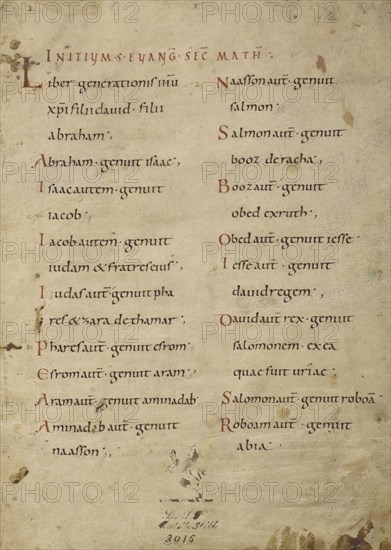 INITIUM·S·EVANG̅·SEC̅ MATH̅
Liber generationis ih̅u
xp̅i filii dauid· filii
abraham·,
Abraham·genuit isaac·,
Isaac autem·genuit
iacob·
Iacob autem·genuit
iudam & fratres eius·,
Iudas aut̅·genuit pha
res & zara de thamar·
Phares aut̅·genuit esrom
Esrom aut̅·genuit aram·
Aram aut̅·genuit aminadab
Aminadab aut̅·genuit
naasson·,
Naasson aut̅·genuit
salmon·
Salmon aut̅·genuit
booz de racha·,
Booz aut̅·genuit
obed ex ruth·,
Obed aut̅·genuit iesse
Iesse aut̅·genuit
dauid regem·,
Dauid aut̅ rex·genuit
salomonem·ex ea
quae fuit uriae·,
Salomon aut̅·genuit roboa̅
Roboam aut̅·genuit
abia·
3015
PHOTO12